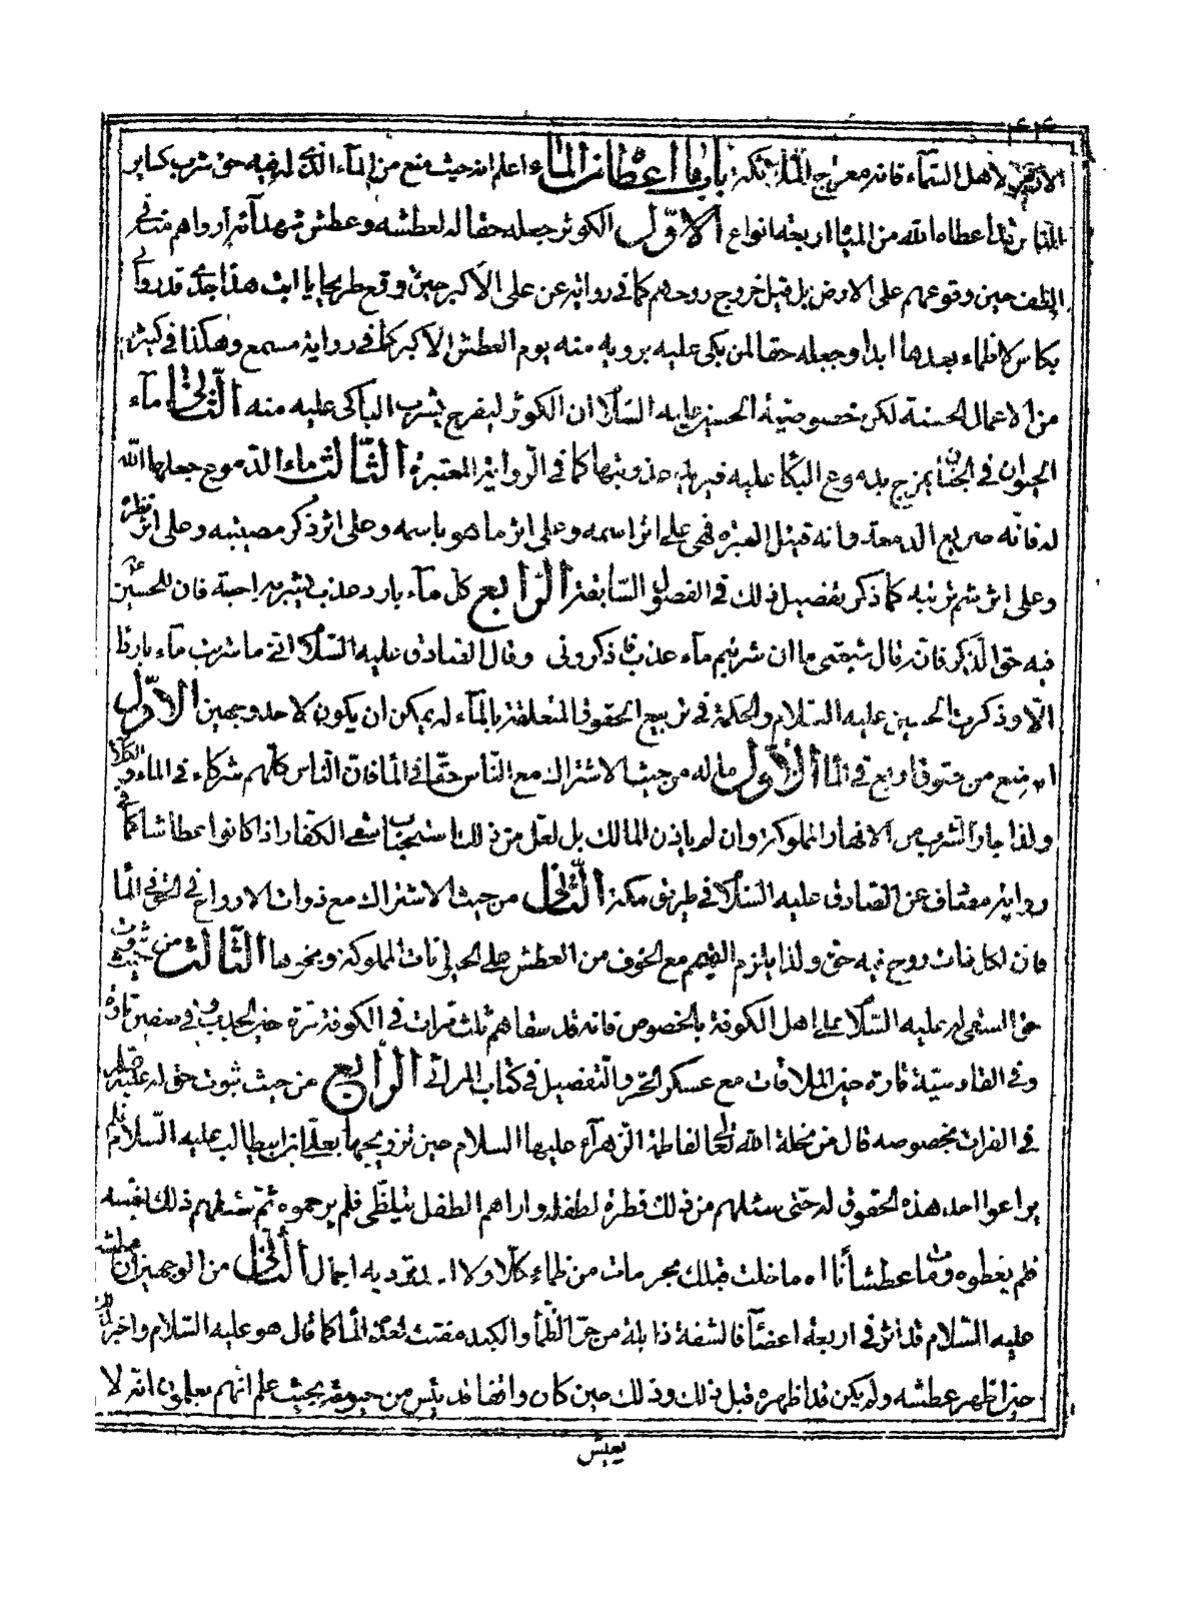 الارض لأهل السمآء فانه معراج الملائكة باب فيما اعطى من المآء اعلم انه حيث منع من المآء الذى له فيه حق شرب كساير
الناس قد اعطاه الله من المياه اربعة انواع الاوّل الكوثر جعله حقا له لعطشه وعطش شهدآئه ارواهم منه في
الطف حين وقوعهم على الارض بل قبل خروج روحهم كما في رواية عن على الأكبر حين وقع طريحا يا ابت هذا جدى قد رواني
بكاس لا ظماء بعدها ابدا وجعله حقا لمن بكى عليه يرويه منه يوم العطش الاكبر كما في رواية مسمع وهكذا في كثير
من الاعمال الحسنة لكن خصوصية الحسين عليه السّلام ان الكوثر ليفرح بشرب الباكى عليه منه الثّاني مآء
الحيوان في الجنان يمزج بدموع البكاء عليه فيزيد عذوبتها كما في الرواية المعتبرة الثّالث ماء الدموع جعلها الله
له فانّه صريع الدمعة وانه قتيل العبرة فهى على اثر اسمه وعلى اثر ما هو باسمه وعلى اثر ذكر مصيبته وعلى اثر نظره
وعلى اثر شم تربته كما ذكر تفصيل ذلك في الفصول السّابقة الرّابع كل مآء بارد عذب يشربه احبته فان للحسين
فيه حق الذكر فانه قال شيعتى ما ان شربتم مآء عذب فاذكروني وقال الصادق عليه السّلام اني ما شربت مآء باردا
الّا وذكرت الحسين عليه السّلام والحكمة في تربيع الحقوق المتعلقة بالمآء له يمكن ان يكون لاحد وجهين الاوّل
انه منع من حقوق اربع في الماء الأوّل ما له من حيث الاشتراك مع النّاس حقّا في الماء فان النّاس كلّهم شركاء في الماء والكلاء
ولذا جاز الشرب من الانهار المملوكة وان لم ياذن المالك بل لعل من ذلك استحباب سقى الكفار اذا كانوا عطاشا كما في
رواية مصادف عن الصادق عليه السّلام في طريق مكة الثّاني من حيث الاشتراك مع ذوات الارواح في الحق في الماء
فان لكل ذات روح فيه حق ولذا يلزم التيمم مع الخوف من العطش على الحيوانات المملوكة ونحوها الثّالث من حيث ثبوت
حق السقى له عليه السّلام على اهل الكوفة بالخصوص فانه قد سقاهم ثلث مرات في الكوفة مرة حين الجدب وفي صفين تارة
وفي القادسيّة تارة حين الملاقات مع عسكر الحرّ والتفصيل في كتاب المراثي الرّابع من حيث ثبوت حق له عليه السّلام
في الفرات بخصوصه قال من نحلة الله تعالى لفاطمة الزهرآء عليها السلام حين تزويجها بعلى بن ابيطالب عليه السّلام فلم
يراعوا احد هذه الحقوق له حتى سئلهم من ذلك قطرة لطفله واراهم الطفل يتلظّى فلم يرحموه ثمّ سئلهم ذلك لنفسه
فلم يعطوه ومات عطشانا اه ما خلت قبلك من ظماء كلّا ولا اجمال الثّاني من الوجهين ان عطشه
عليه السّلام قد اثر في اربعة اعضآء فالشفة ذابلة من حرّ الظّمأ والكبد مفتت لعدم الماء كما قال هو عليه السّلام واخبر
حين اظهر عطشه ولم يكن قد اظهره قبل ذلك وذلك حين كان واقفا قد يئس من حيوته بحيث علم انهم يعلمون انه لا
يعيش